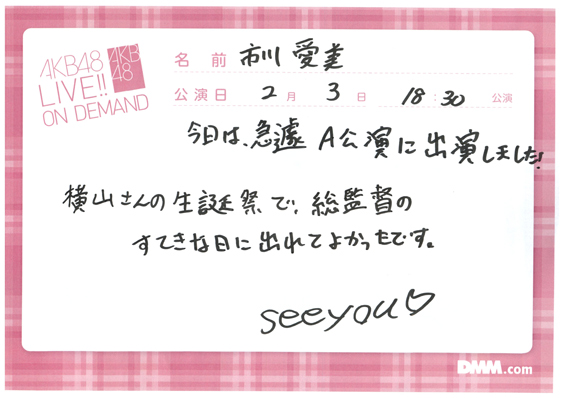 AKB48
LIVE!!
ON DEMAND
AKB
48
名 前 市川 愛美
公演日 2 月 3 日 18:30 公演
今日は、急遽 A公演に出演しました!
横山さんの生誕祭で、総監督の
すてきな日に出れてよかったです。
seeyou♡
DMM.com